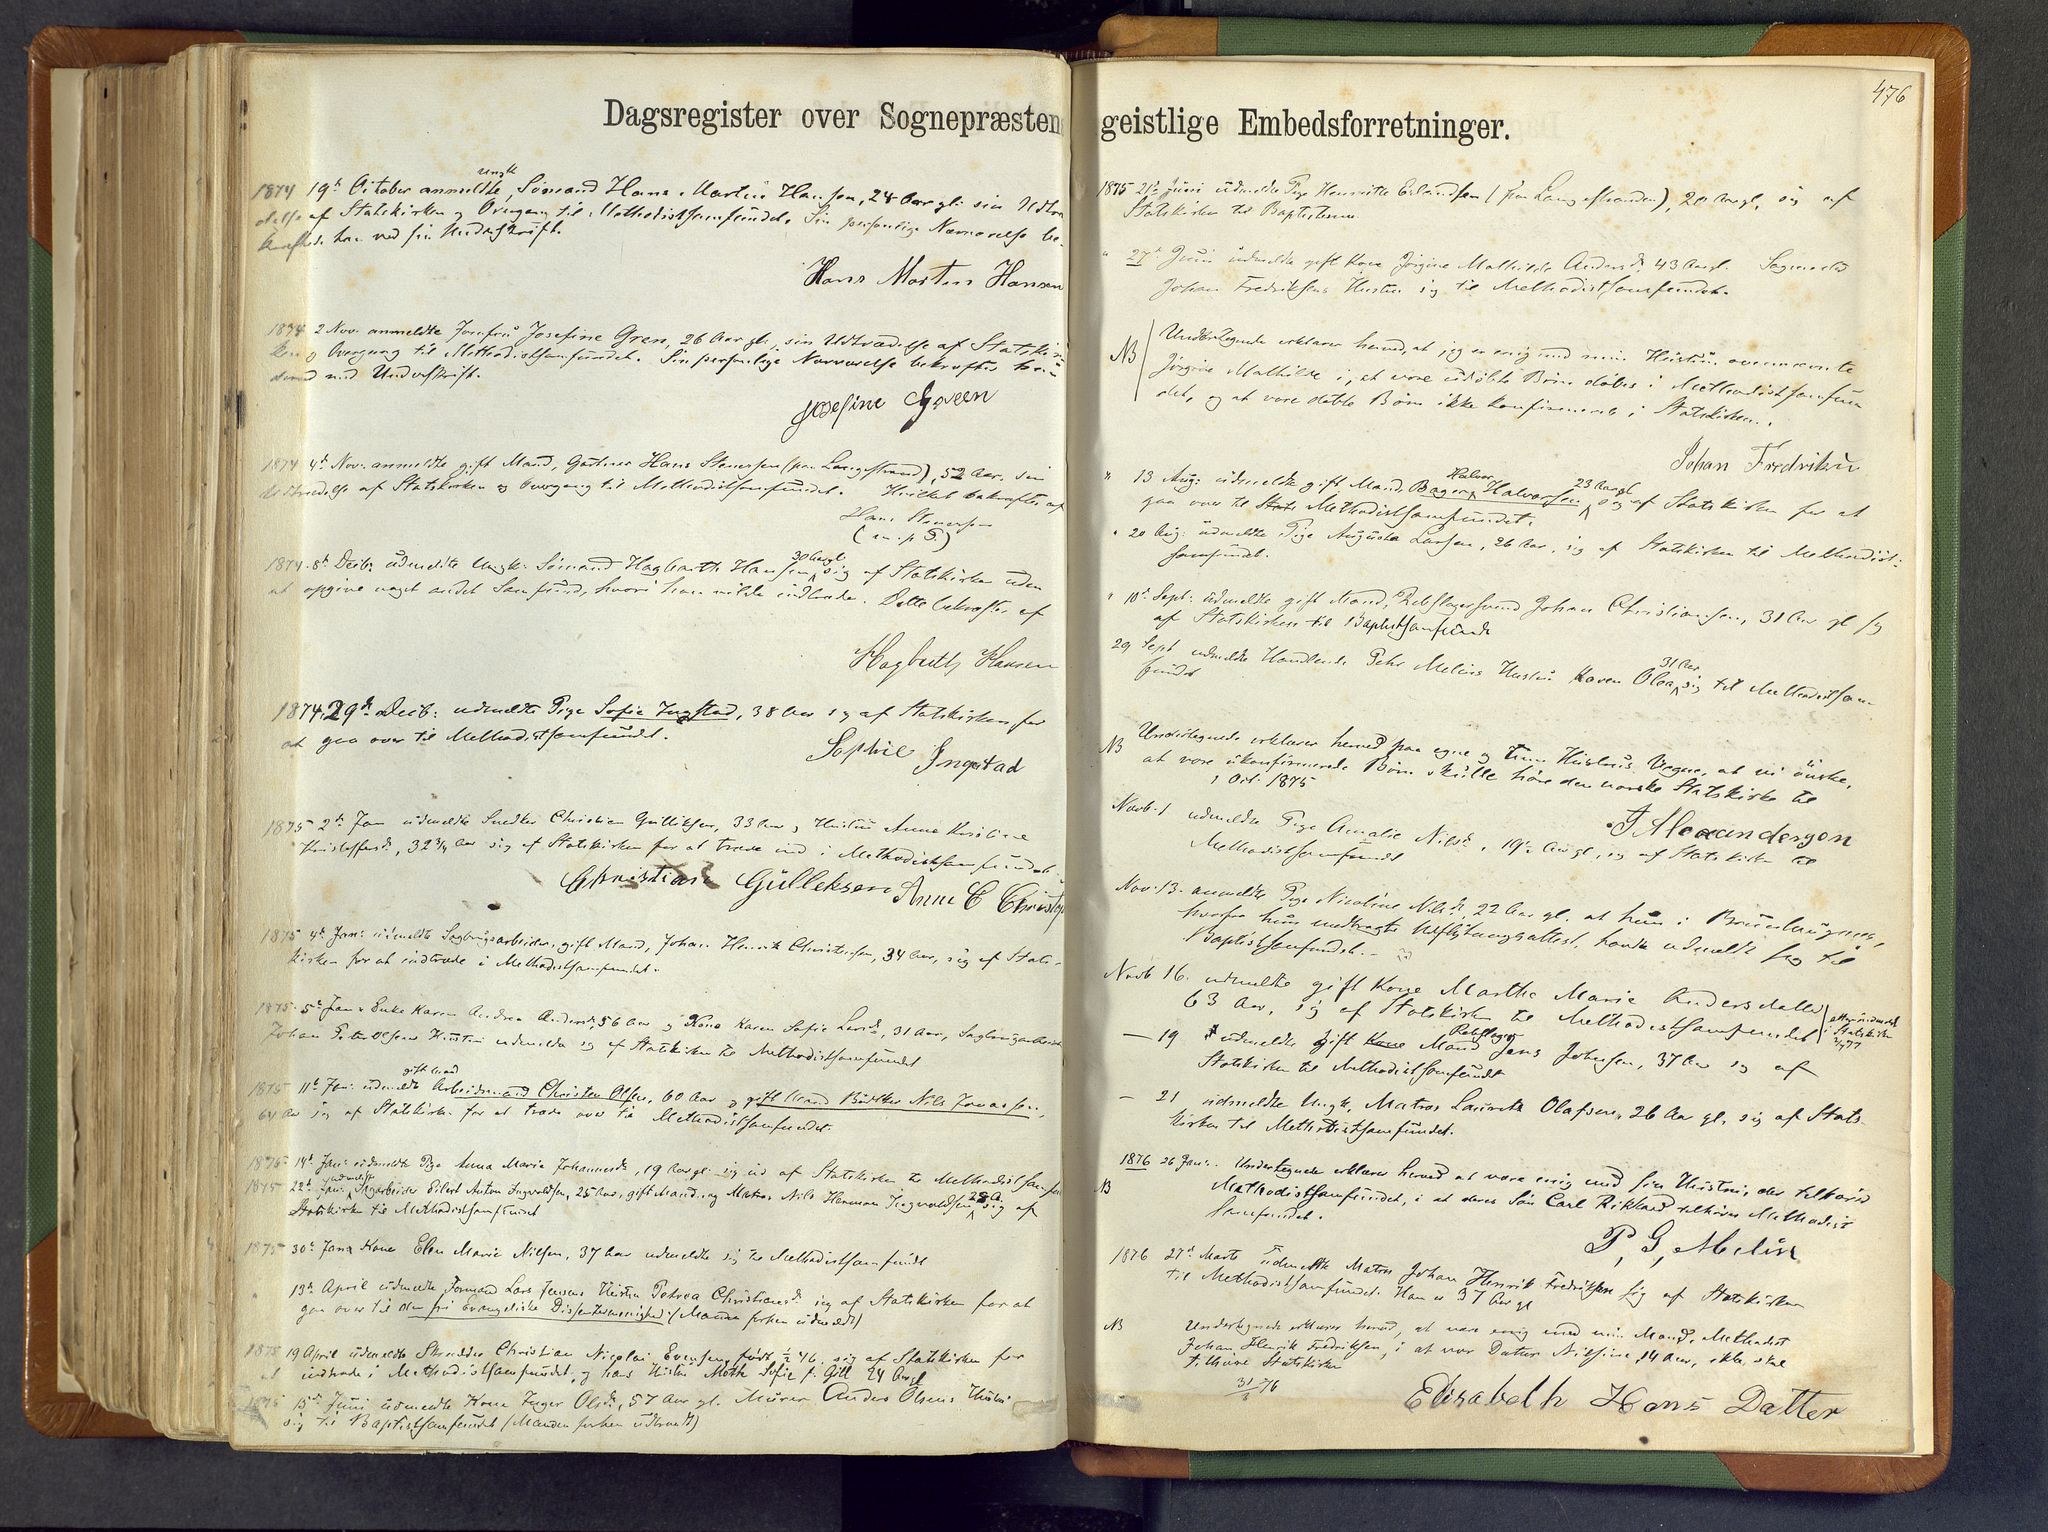 Dagsregister over Sognepræsten
1874 19de October anmeldte ungk Sømand Hans Martin Hansen, 24 Aar gl. sin Udtræ
delse af Statskirken og Overgang til Methodistsamfundet. Sin personlige Nærværelse be-
kræfter han ved sin Underskrift.
Hans Martin Hansen
1874 2 Nov. anmeldte Jomfru Josefine Gren, 26 Aar gl. sin Udtrædelse af Statskir
ken og Overgang til Methodistsamfundet. Sin personlige Nærværelse bekræfter hun
derved med Underskrift.
Josefine Green
1874 4de Nov. anmeldte gift Mand, Hans Stenersen (paa Langestrand), 52 Aar, sin
Udtrædelse af Statskirken og Overgang til Methodistsamfundet. Hvilket bekræftes af
Hans Stenersen
(m. p. P.)
1874 8de Decb: udmeldte Ungk: Sømand Hagbarth Hansen 30 Aar gl. sig af Statskirken uden
at opgive noget andet Samfund, hvori han vilde indtræde. Dette bekræftes af
Hagbarth Hansen
1874 29de Decb: udmeldte Pige Sofie Ingstad, 38 Aar sig af Statskirken for
at gaa over til Methodistsamfundet.
Sophie Ingstad
1875 2de Jan udmeldte Snedker Christian Gulliksen, 33 Aar og Hustru Anne Kirstine
Kristoffersd., 32 3/4 Aar sig af Statskirken for at træde ind i Methodistsamfundet.
Christian Gulleksen Anne C Christop
1875 4de Jan: udmeldte Sagbrugsarbeider, gift Mand, Johan Henrik Christensen, 34 Aar, sig af Stats-
kirken for at indtræde i Methodistsamfundet.
1875 5te Jan: Enke Karen Andrea Andersd, 56 Aar og Kone Karen Sofie Larsd., 31 Aar, Sagbrugsarbeider
Johan Petter Olsens Hustru udmeldte sig af Statskirken til Methodistsamfundet
1875 11te Jan: udmeldte gift Mand Arbeidsmand Christen Olsen, 60 Aar og gift Mand Bødker Nils Jonassen,
64 Aar sig af Statskirken for at træde over til Methodistsamfundet.
1875 14de Jan: udmeldte Pige Anna Marie Johannesd., 19 Aar gl. sig ud af Statskirken til Methodistsamfun
1875 22de Jan: udmeldte Eilert Anton Ingvoldsen, 25 Aar, gift Mand, og Matros Nils Herman Ingvoldsen 28 A. sig af
Statskirken til Methodistsamfundet
1875 30te Jan: Kone Elen Marie Nilsen, 37 Aar udmeldte sig til Methodistsamfundet
" 13de April udmeldte Formand Lars Jensens Hustru Petrea Christiansd. sig af Statskirken for at
gaa over til den fri Evangeliske Dissentermenighed. (Manden forhen udmeldt)
1875 19 April udmeldte Skrædder Christian Nicolai Evensen, født 1/2 46, sig af Statskirken for
at indtræde i Methodistsamfundet, og hans Hustru Mette Sofie f. Gill 24 Aar gl
1875 15de Juni udmeldte Kone Inger Olsd., 57 Aar gl. Murer Anders Olsens Hustru
sig til Baptistsamfundet (Manden forhen udtraadt)
476
geistlige Embedsforretninger.
1875 21de Juni udmeldte Pige Henriette Erlandsen (paa Langestranden), 20 Aar gl, sig af
Statskirken til Baptisterne
" 27de Juni udmeldte gift Kone Jørgine Mathilde Andersd. 43 Aar gl.
Johan Fredriksens Hustru sig til Methodistsamfundet.
NB Undertegnede erklærer herved, at jeg er enig med min Hustru ovennævnte
Jørgine Mathilde i, at vore udøbte Børn døbes i Methodistsamfun
det, og at vore døbte Børn ikke konfirmeres i Statskirken.
Johan Fredriksen
" 13 Aug: udmeldte gift Mand Bager Halvor Halvorsen 23 Aar gl sig af Statskirken for at
gaa over til Stats Methodistsamfundet.
" 20 Aug: udmeldte Pige Augusta Larsen, 26 Aar, sig af Statskirken til Methodist-
samfundet.
" 10de Sept: udmeldte gift Mand, Rebslagersvend Johan Christiansen, 31 Aar gl sig
af Statskirken til Baptistsamfundet
29 Sept udmeldte Handlende Pehr Melins Hustru Karen Olea 31 Aar, sig til Methodistsam-
fundet
NB Undertegnede erklærer herved paa egne og min Hustrus Vegne, at vi ønske,
at vore ukonfirmerede Børn skulle høre den norske Statskirke til
1 Oct. 1875
J Alexandersen
Novb. 1 udmeldte Pige Amalie Nilsd., 19 1/2 Aar gl., sig af Statskirken til
Methodistsamfundet
Nov. 13. anmeldte Pige Nicoline Nilsd, 22 Aar gl. at hun i Brunlaugnes,
hvorfra hun medbragte Udflytningsattest, havde udmeldt sig til
Baptistsamfundet.-
Novb 16. udmeldte gift Kone Marthe Marie Andersdatter
63 Aar, sig af Statskirken til Methodistsamfundet
atter indmeldt
i Statskirken
— 19 udmeldte gift Kone Mand Rebslager Jens Johnsen, 37 Aar sig af
Statskirken til Methodistsamfundet
— 21 udmeldte Ungk. Matros Lauritz Olafsen, 26 Aar gl. sig af Stats-
kirken til Methodistsamfundet.
1876 26 Jan: Undertegnede erklærer herved at være enig med sin Hustru, der tilhører
NB Methodistsamfundet, i at deres Søn Carl Rikhard tilhører Methodist
samfundet.
P, G, Melin
1876 27de Marts udmeldte Matros Johan Henrik Fredriksen sig af Statskirken
til Methodistsamfundet. Han er 37 Aar gl
NB Undertegnede erklærer herved, at være enig med min Mand, Methodist
Johan Henrik Fredriksen, i at vor Datter Nilsine, 14 Aar, ikke skal
tilhøre Statskirken
31/3 76
Elisabelh Hans Datter